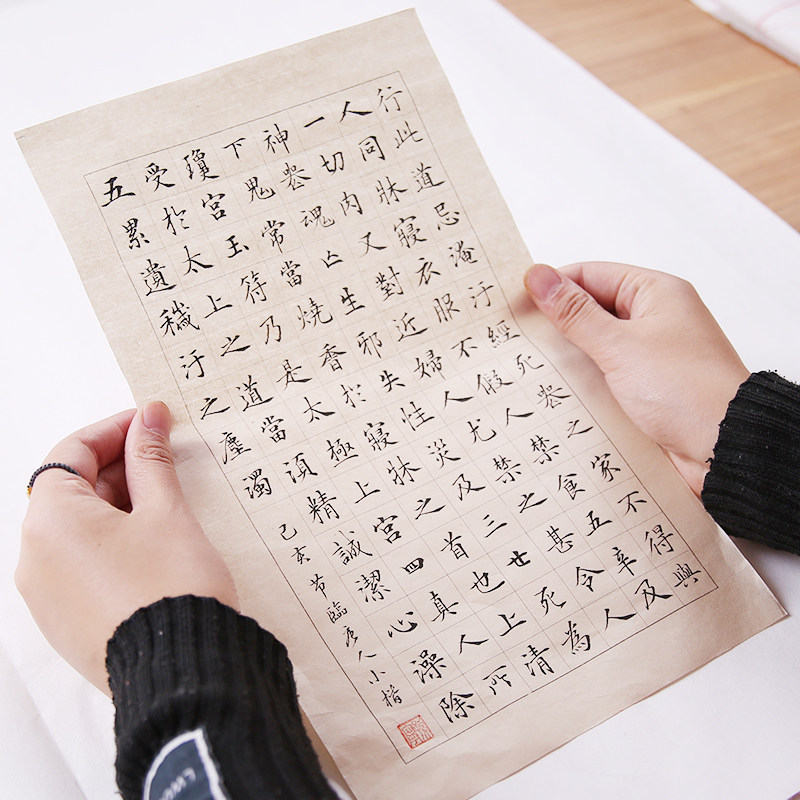 行此道忌淹汙經死喪之家不得與
人同牀寢衣服不假人禁食五辛及
一切内又對近婦人尤禁之甚令人
神喪魂亡生邪失性災及三世死為
下鬼常當燒香於寢牀之首也上清
瓊宮玉符乃是太極上宮四真人所
受於太上之道當湏精誠潔心澡除
五累遺穢汙之塵濁
己亥节臨唐人小楷